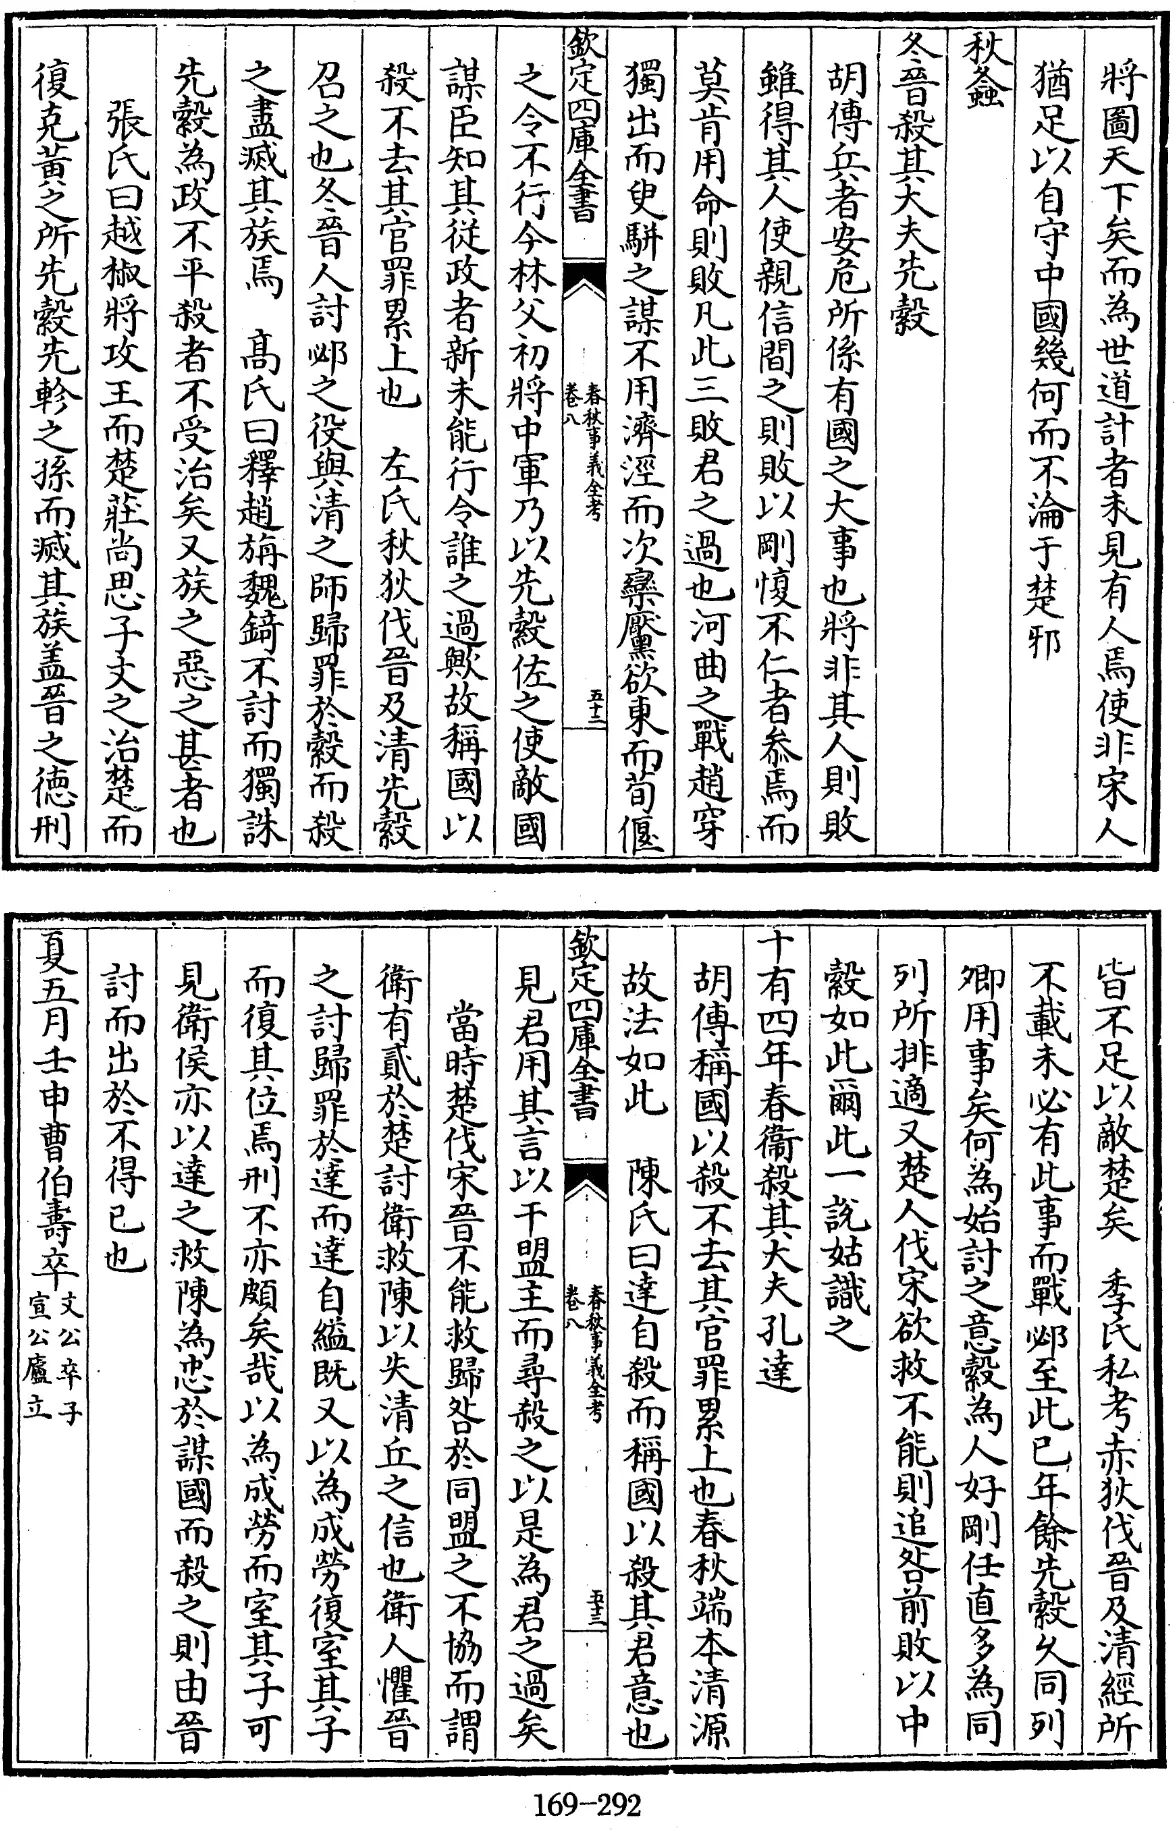 將圖天下矣而為世道計者未見有人焉使非宋人
猶足以自守中國幾何而不淪于楚邪
秋螽
冬晉殺其大夫先縠
胡傳兵者安危所係有國之大事也將非其人則敗
雖得其人使親信間之則敗以剛愎不仁者叅焉而
莫肯用命則敗凡此三敗君之過也河曲之戰趙穿
獨出而臾駢之謀不用濟涇而次欒黶欲東而荀偃
欽定四庫全書
春秋事義全考
卷八
五十二
之令不行今林父初將中軍乃以先縠佐之使敵國
謀臣知其從政者新未能行令誰之過歟故稱國以
殺不去其官罪累上也　左氏秋狄伐晉及清先縠
召之也冬晉人討邲之役與清之師歸罪於縠而殺
之盡滅其族焉　髙氏曰釋趙旃魏錡不討而獨誅
先縠為政不平殺者不受治矣又族之惡之甚者也
張氏曰越椒將攻王而楚莊尚思子文之治楚而
復克黃之所先縠先軫之孫而滅其族盖晉之德刑
皆不足以敵楚矣　季氏私考赤狄伐晉及清經所
不載未必有此事而戰邲至此已年餘先縠久同列
卿用事矣何為始討之意縠為人好剛任直多為同
列所排適又楚人伐宋欲救不能則追咎前敗以中
縠如此爾此一説姑識之
十有四年春衞殺其大夫孔達
胡傳稱國以殺不去其官罪累上也春秋端本清源
故法如此　陳氏曰達自殺而稱國以殺其君意也
欽定四庫全書
春秋事義全考
卷八
五十三
見君用其言以干盟主而尋殺之以是為君之過矣
當時楚伐宋晉不能救歸咎於同盟之不協而謂
衛有貳於楚討衛救陳以失清丘之信也衛人懼晉
之討歸罪於達而達自縊既又以為成勞復室其子
而復其位焉刑不亦頗矣哉以為成勞而室其子可
見衛侯亦以達之救陳為忠於謀國而殺之則由晉
討而出於不得已也
夏五月壬申曹伯壽卒文公卒子
宣公廬立
169-292